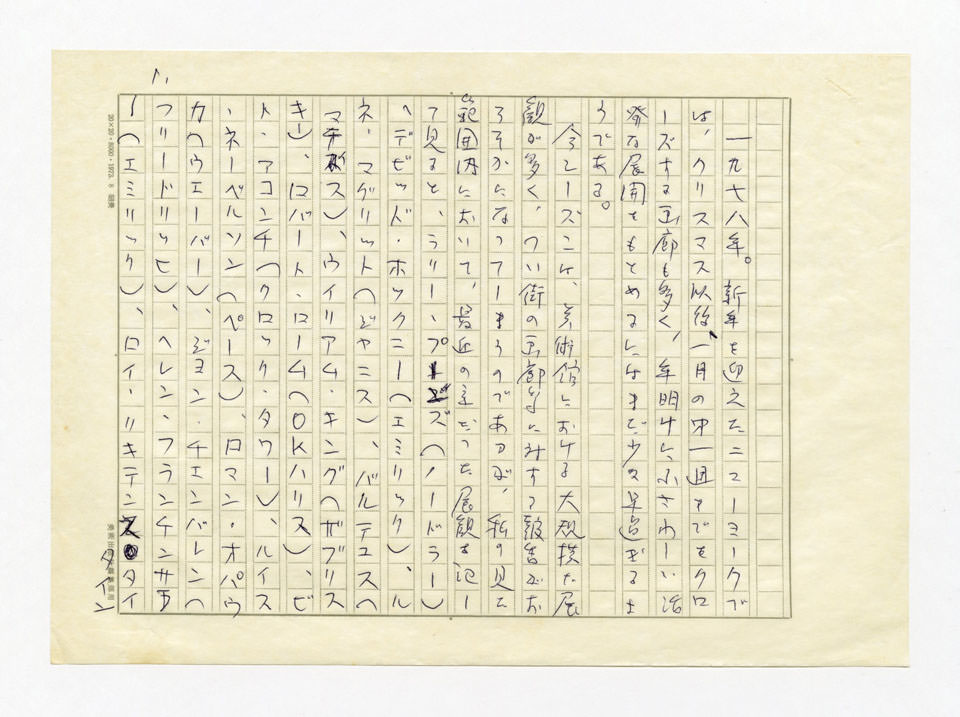 1.
一九七八年。新年を迎えたニューヨークで
は、クリスマス以後、一月の第一週までをクロ
ーズする画廊も多く、年明けにふさわしい活
発な展開をもとめるにはまだ少々早過ぎるよ
うである。
今シーズンは、美術館における大規模な展
観が多く、つい街の画廊に対する報告がお
ろそかになってしまうのであるが、私の見た
範囲内において、最近の主だった展観を記し
て見ると、ラリー・プーンズ（ノードラー）
、デビッド・ホックニー（エミリック）、ル
ネ・マグリット（ジャニス）、バルテュス（
マチス）、ウイリアム・キング（ザブリス
キー）、ロバート・ローム（OKハリス）、ビ
ト・アコンチ（クロック・タワー）、ルイス
・ネーベルソン（ペース）、ロマン・オパウ
カ（ウエーバー）、ジョン・チェンバレン（
フリードリッヒ）、ヘレン・フランケンサ
ー（エミリック）、ロイ・リキテンスタイ
タイン
20×20・8000・1973.8